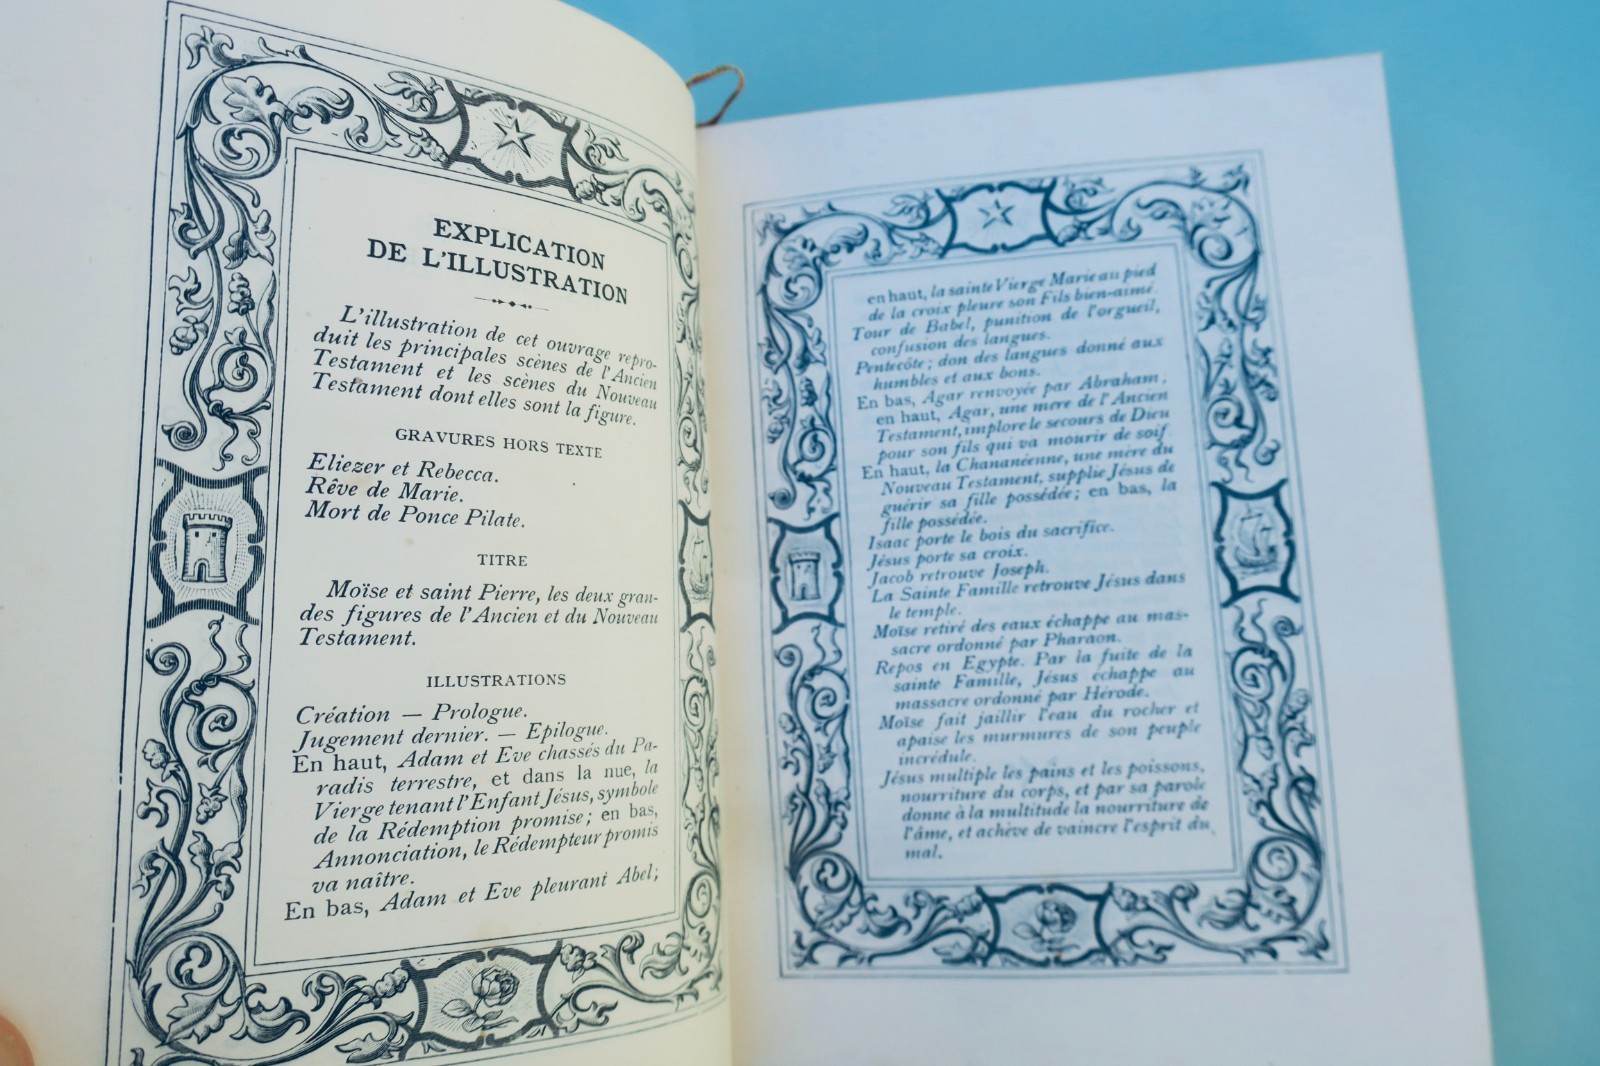 EXPLICATION
DE L'ILLUSTRATION
L'illustration de cet ouvrage repro-
duit les principales scènes de l'Ancien
Testament et les scènes du Nouveau
Testament dont elles sont la figure.
GRAVURES HORS TEXTE
Eliezer et Rebecca.
Rêve de Marie.
Mort de Ponce Pilate.
TITRE
Moïse et saint Pierre, les deux gran-
des figures de l'Ancien et du Nouveau
Testament.
ILLUSTRATIONS
Création — Prologue.
Jugement dernier. — Epilogue.
En haut, Adam et Eve chassés du Pa-
radis terrestre, et dans la nue, la
Vierge tenant l'Enfant Jésus, symbole
de la Rédemption promise; en bas,
Annonciation, le Rédempteur promis
va naître.
En bas, Adam et Eve pleurant Abel;
en haut, la sainte Vierge Marie au pied
de la croix pleure son Fils bien-aimé.
Tour de Babel, punition de l'orgueil,
confusion des langues.
Pentecôte; don des langues donné aux
humbles et aux bons.
En bas, Agar renvoyée par Abraham,
en haut, Agar, une mère de l'Ancien
Testament, implore le secours de Dieu
pour son fils qui va mourir de soif.
En haut, la Chananéenne, une mère du
Nouveau Testament, supplie Jésus de
guérir sa fille possédée; en bas, la
fille possédée.
Isaac porte le bois du sacrifice.
Jésus porte sa croix.
Jacob retrouve Joseph.
La Sainte Famille retrouve Jésus dans
le temple.
Moïse retiré des eaux échappe au mas-
sacre ordonné par Pharaon.
Repos en Egypte. Par la fuite de la
sainte Famille, Jésus échappe au
massacre ordonné par Hérode.
Moïse fait jaillir l'eau du rocher et
apaise les murmures de son peuple
incrédule.
Jésus multiple les pains et les poissons,
nourriture du corps, et par sa parole
donne à la multitude la nourriture de
l'âme, et achève de vaincre l'esprit du
mal.